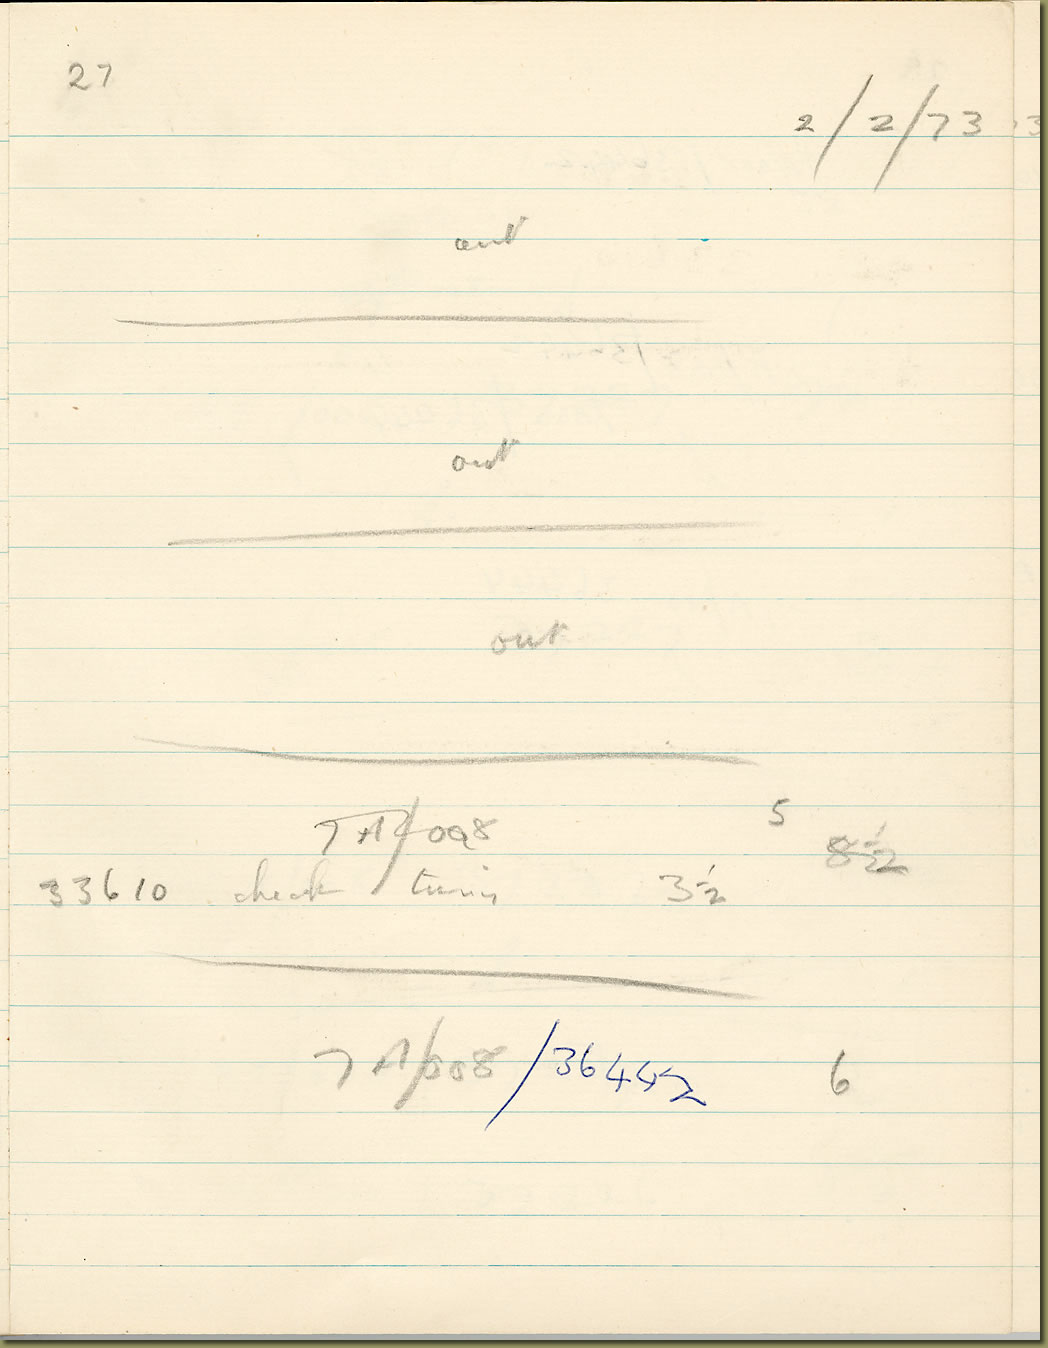 27
2/2/73
out
out
out
7A/008 5 8½
33610 check tuning 3½
7A/008/36442 6